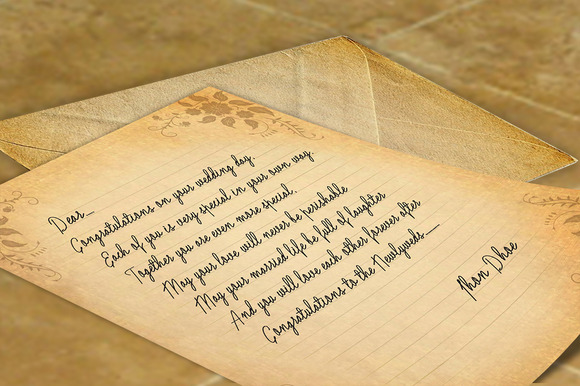 Dear_
Congratulations on your wedding day.
Each of you is very special in your own way.
Together you are even more special.
May your love will never be perishable
May your married life be full of laughter
And you will love each other forever after
Congratulations to the Newlyweds_
Jhon Dhoe